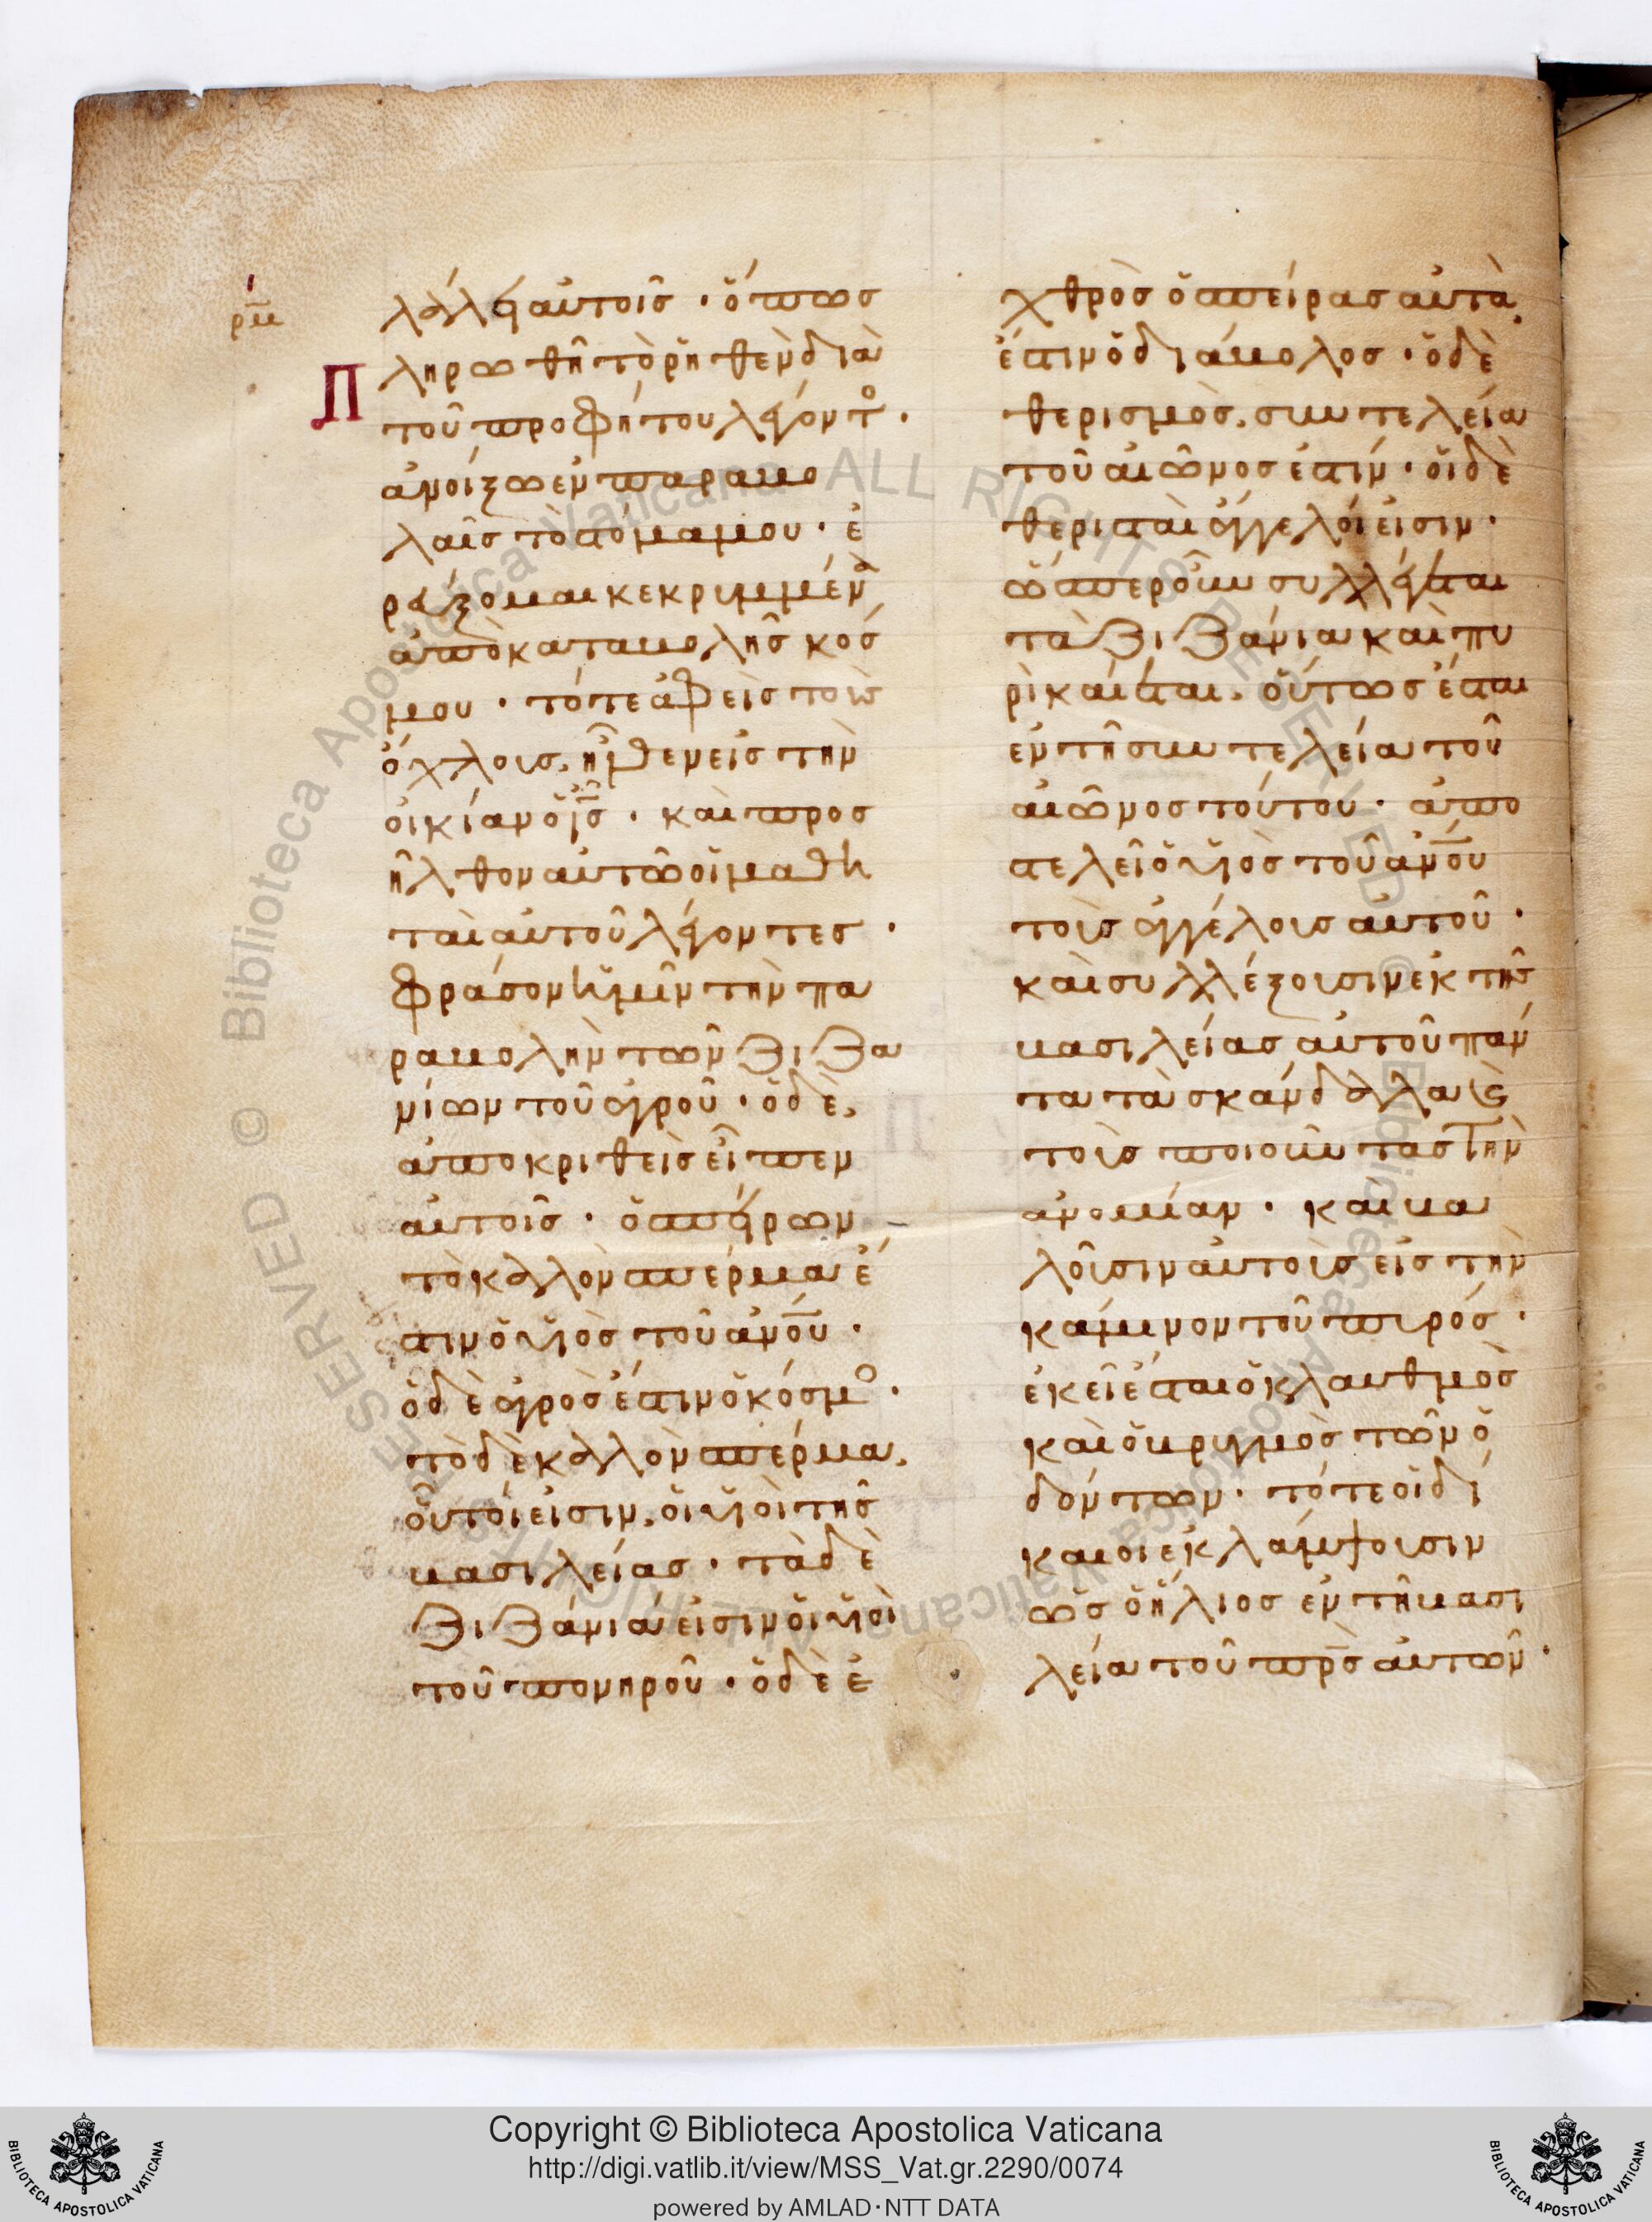 ρμ
λάλει αὐτοῖς · ὅπως
Π
ληρωθῆ τὸ ῥηθὲν διὰ
τοῦ προφήτου λέγοντο ·
ἀνοίξω ἐν παραβο
λαῖς τὸ στόμα μου · ἐ
ρεύξομαι κεκρυμμένα
ἀπὸ καταβολῆς κόσ
μου · τότε ἀφεὶς τοὺς
ὄχλους, ἦλθεν εἰς τὴν
οἰκίαν ὁ ἰ̅ς̅ · καὶ προσ
ῆλθον αὐτῶ οἱ μαθη
ταὶ αὐτοῦ λέγοντες ·
φράσον ἡμῖν τὴν πα
ραβολὴν τῶν ζιζα
νίων τοῦ ἀγροῦ · ὁ δὲ,
ἀποκριθεὶς εἶπεν
αὐτοῖς · ὁ σπείρων
τὸ καλὸν σπέρμα ἐ
στιν ὁ υἱὸς τοῦ ἀν̅ο̅υ̅ ·
ὁ δὲ ἀγρὸς ἐστιν ὁ κόσμο ·
τὸ δὲ καλὸν σπέρμα,
οὗτοί εἰσιν, οἱ υἱοὶ τῆς
βασιλείας · τὰ δὲ
ζιζάνιά εἰσιν οἱ υἱοὶ
τοῦ πονηροῦ · ὁ δὲ ἐ
χθρὸς ὁ σπείρας αὐτὰ,
ἐστιν ὁ διάβολος · ὁ δὲ
θερισμὸς, συντελεία
τοῦ αἰῶνος ἐστίν · οἱ δὲ
θερισταὶ ἄγγελοί εἰσιν ·
ὥσπερ οὖν συλλέγεται
τὰ ζιζάνια καὶ πυ
ρὶ καίεται, οὕτως ἔσται
ἐν τῆ συντελεία τοῦ
αἰῶνος τούτου · ἀπο
στελεῖ ὁ υἱὸς τοῦ ἀν̅ο̅υ̅
τοὺς ἀγγέλους αὐτοῦ ·
καὶ συλλέξουσιν ἐκ τῆς
βασιλείας αὐτοῦ πάν
τα τὰ σκάνδαλα ϗ
τοὺς ποιοῦντας τὴν
ἀνομίαν · καὶ βα
λοῦσιν αὐτοὺς εἰς τὴν
κάμινον τοῦ πυρός ·
ἐκεῖ ἔσται ὁ κλαυθμὸς
καὶ ὁ βρυγμὸς τῶν ὀ
δόντων · τότε οἱ δί
καιοι ἐκλάμψουσιν
ὡς ὁ ἥλιος ἐν τῆ βασι
λεία τοῦ πρ̅ς̅ αὐτῶν ·
© Biblioteca Apostolica Vaticana ALL RIGHTS RESERVED © Biblioteca Apostolica Vaticana ALL RIGHTS RESERVED
Copyright © Biblioteca Apostolica Vaticana
http://digi.vatlib.it/view/MSS_Vat.gr.2290/0074
powered by AMLAD·NTT DATA
BIBLIOTECA APOSTOLICA VATICANA
BIBLIOTECA APOSTOLICA VATICANA